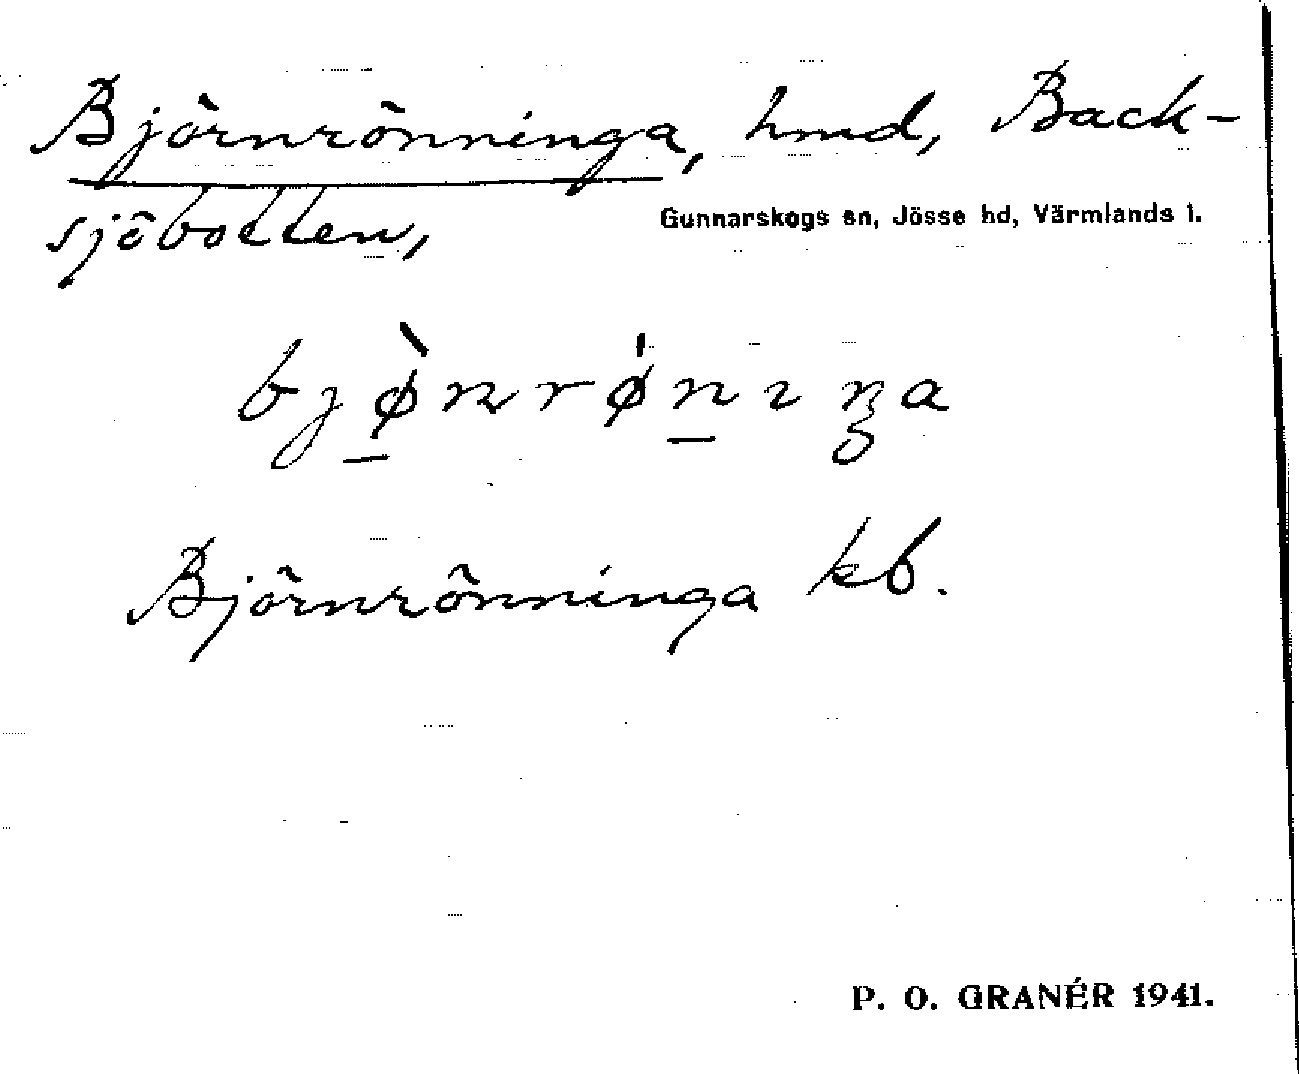 Björnrönninga, hmd, Back-
sjöbotten,
Gunnarskogs sn, Jösse hd, Värmlands l.
bjø̀ɳrǿnıŋa
Björnrönninga kb.
P. O. GRANÉR 1941.